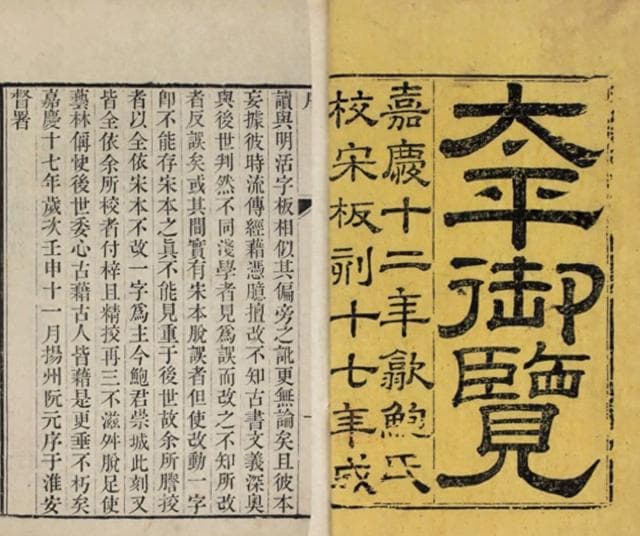 太平御覽
嘉慶十二年歙鮑氏
校宋板刻十七年成
序
讀與明活字板相似其偏旁之訛更無論矣且彼本
妄據彼時流傳經藉憑臆擅改不知古書文義深奧
與後世判然不同淺學者見爲誤而改之不知所改
者反誤矣或其間實有宋本脫誤者但使改動一字
卽不能存宋本之眞不能見重于後世故余所謄挍
者以全依宋本不改一字爲主今鮑君崇城此刻又
皆全依余所校者付梓且精挍再三不滋舛脫足使
藝林稱快後世委心古藉古人皆藉是更垂不朽矣
嘉慶十七年歲次壬申十一月揚州阮元序于淮安
督署